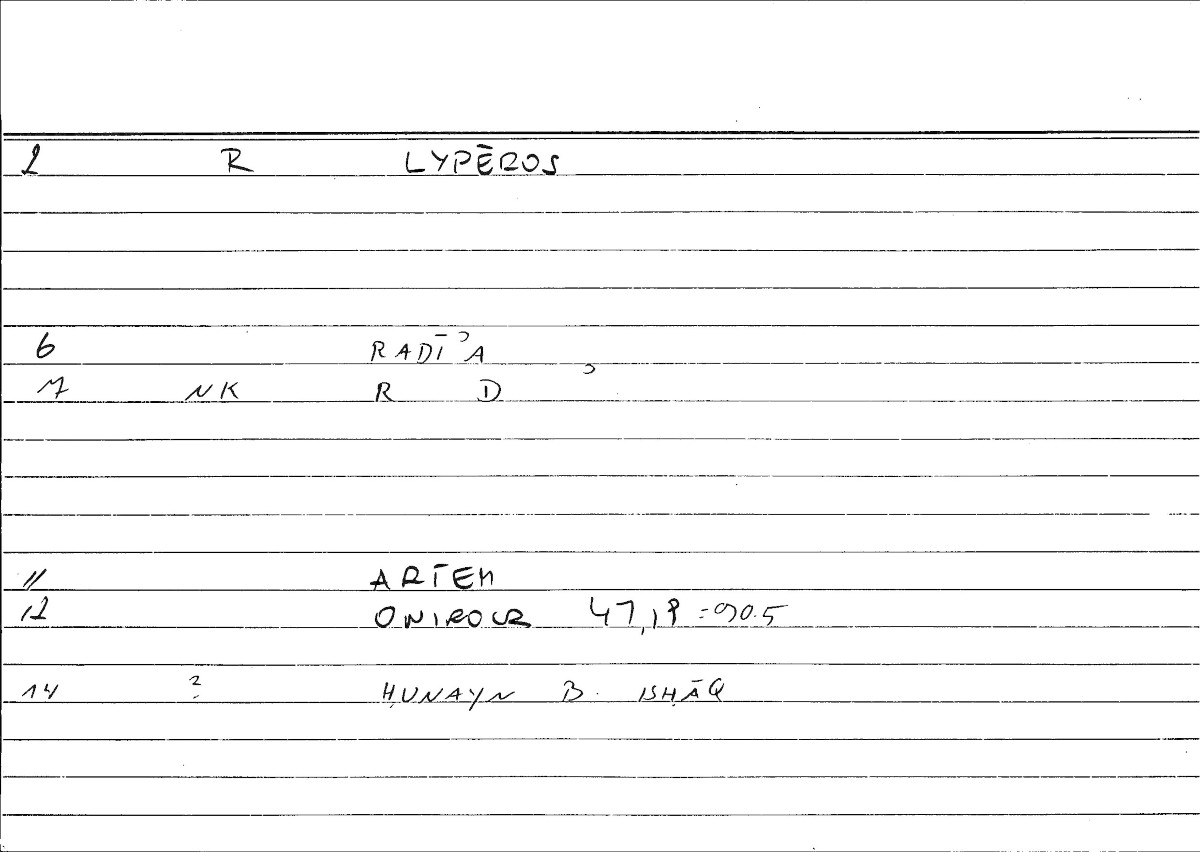 1 R LYPĒROS
6 RADĪʾA
7 NK R D ʾ
11 ARTEM
12 ONIROCR 47,19 = 90.5
14 ? ḤUNAYN B. ISḤĀQ